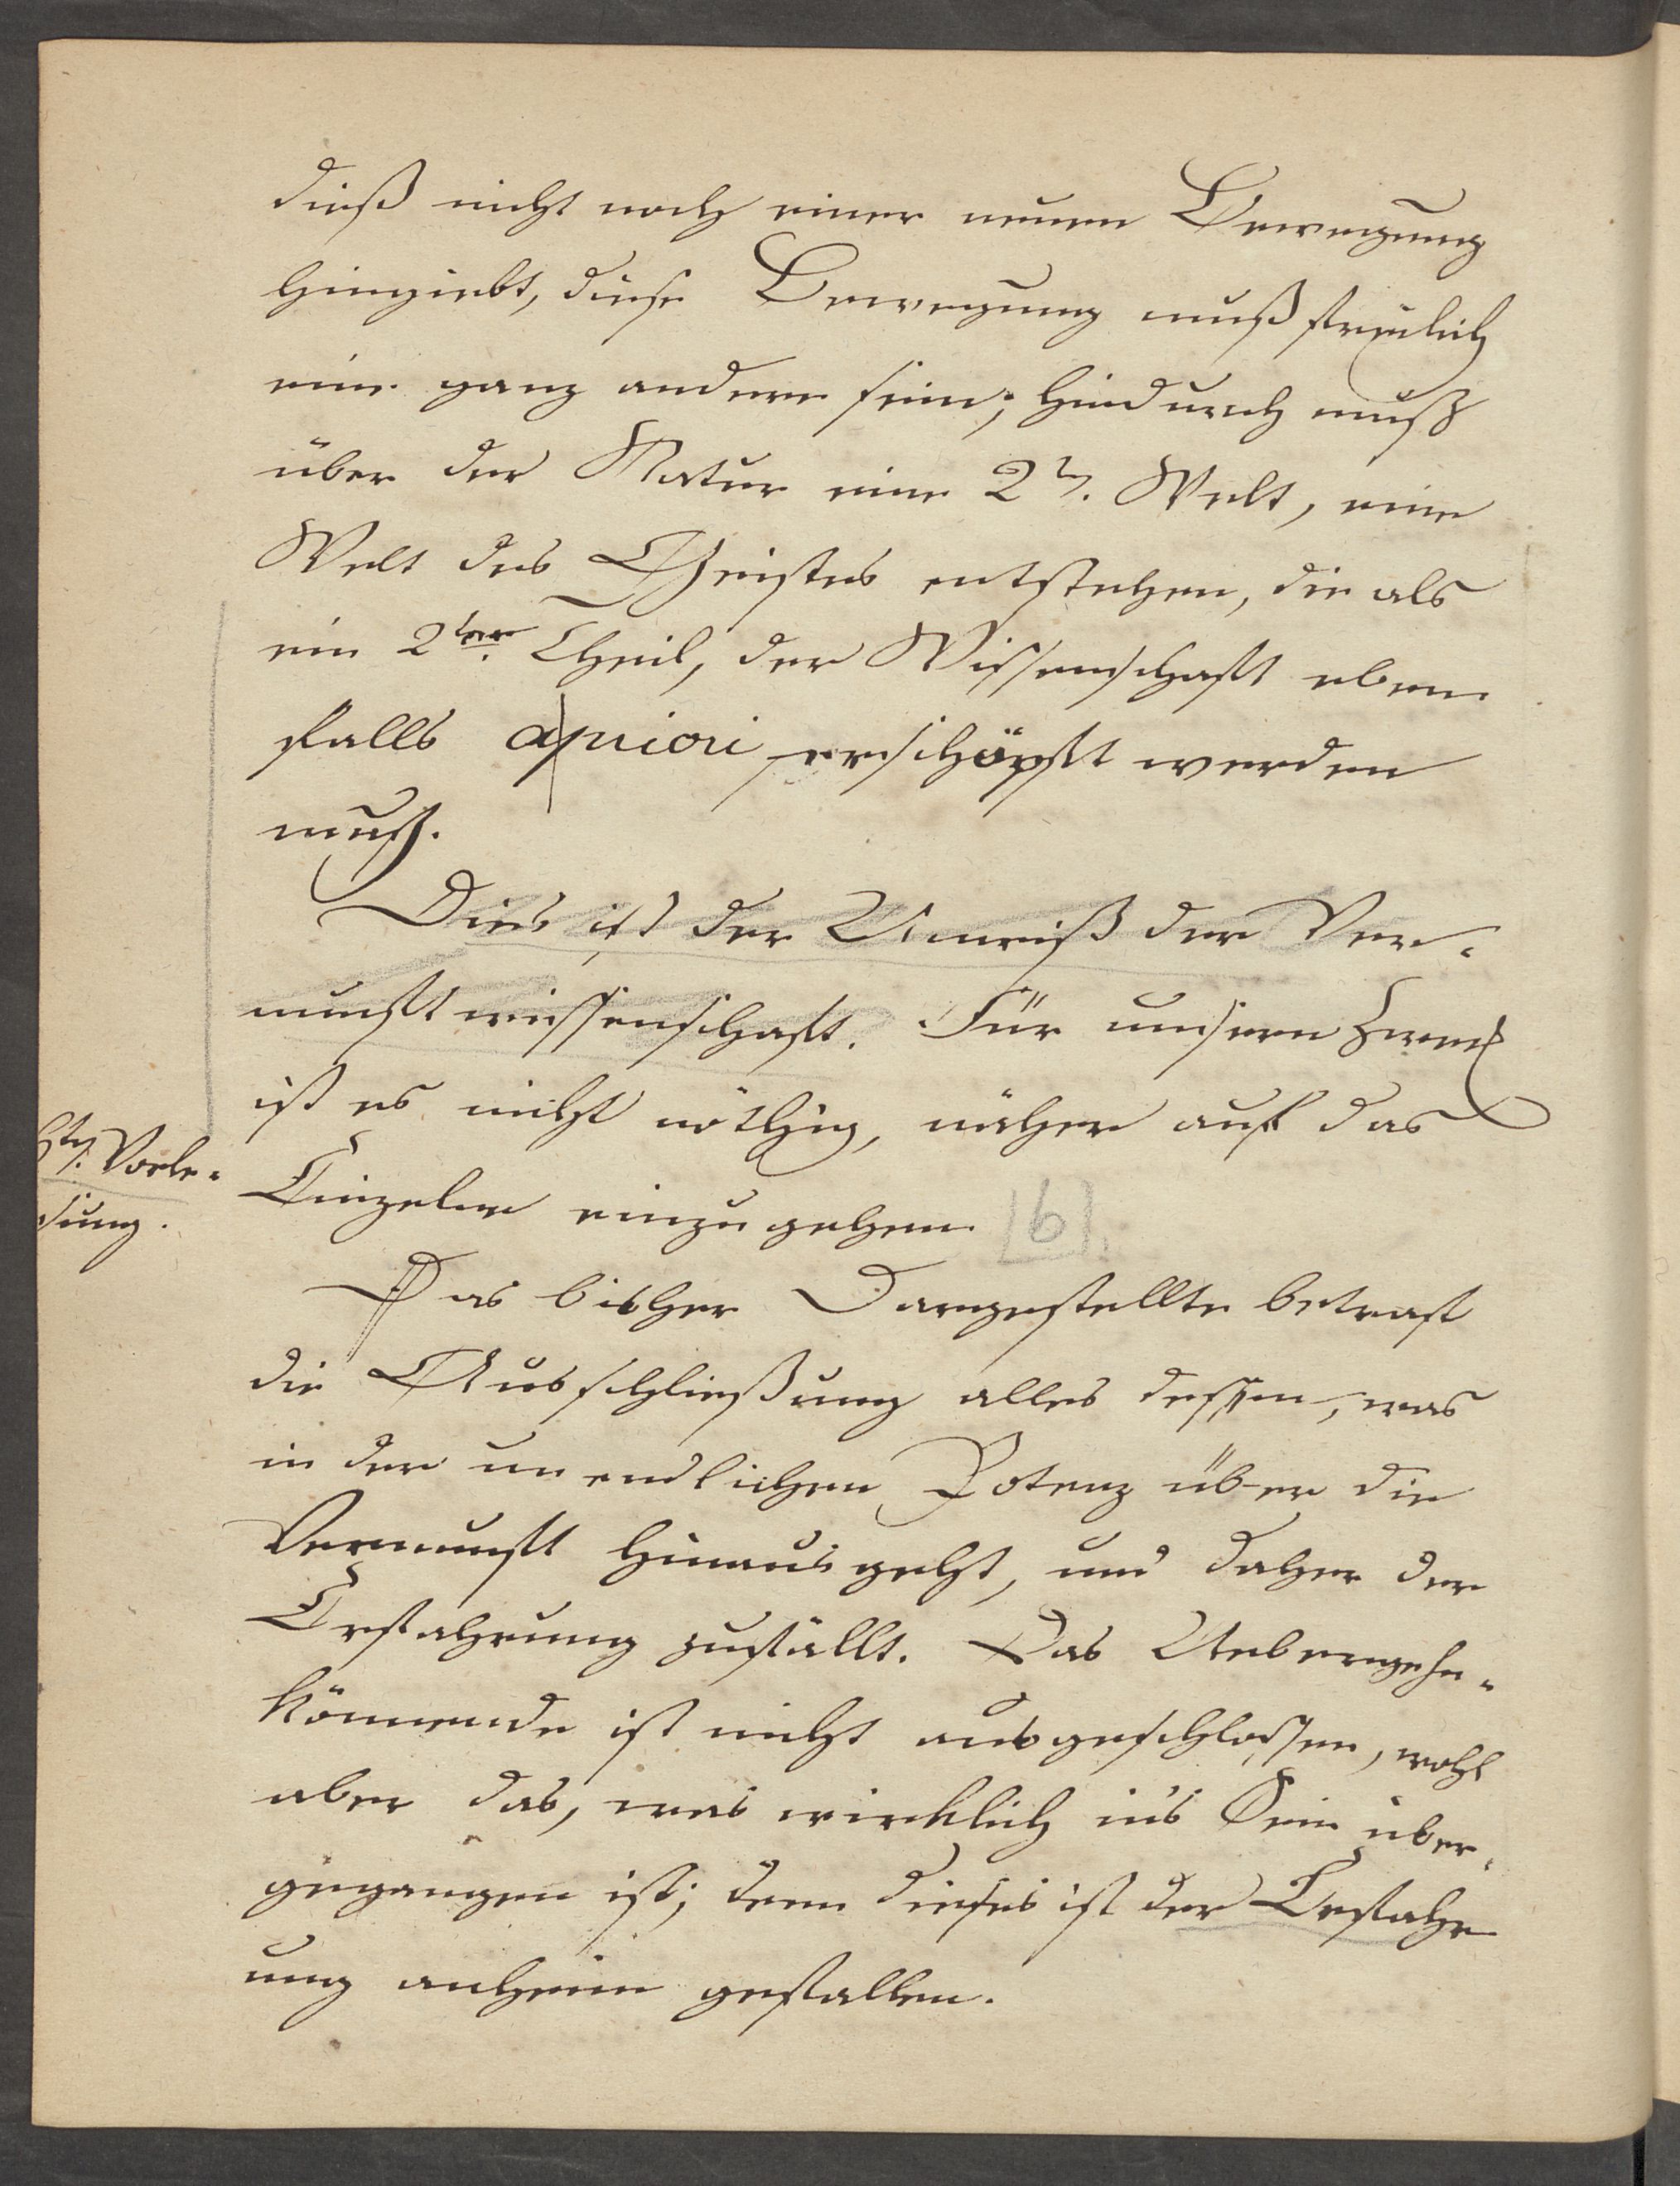 dieß nicht noch einer neuen Bewegung
hingiebt, diese Bewegung muß freilich
eine ganz andere sein; hindurch muß
über der Natur eine 2te. Welt, eine
Welt des Geistes entstehen, die als
ein 2ter. Theil, der Wissenschaft eben
falls a priori erschöpft werden
muß.
Dies ist der Umriß der Ver-
nunftwissenschaft. Für unsern Zweck
ist es nicht nöthig, näher auf das
Vorle-
Einzelne einzugehen. 6
sung.
Das bisher Dargestellte betraf
die Ausschließung alles dessen, was
in der unendlichen Potenz über die
Vernunft hinausgeht, und daher der
Erfahrung zufällt. Das Uebergehn-
könnende ist nicht ausgeschlossen, wohl
aber das, was wirklich in's Sein über-
gegangen ist; denn dieses ist der Erfahr
ung anheim gefallen.